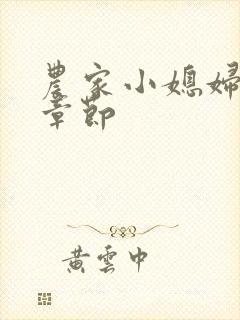 農家小媳婦
章節
黃雲中